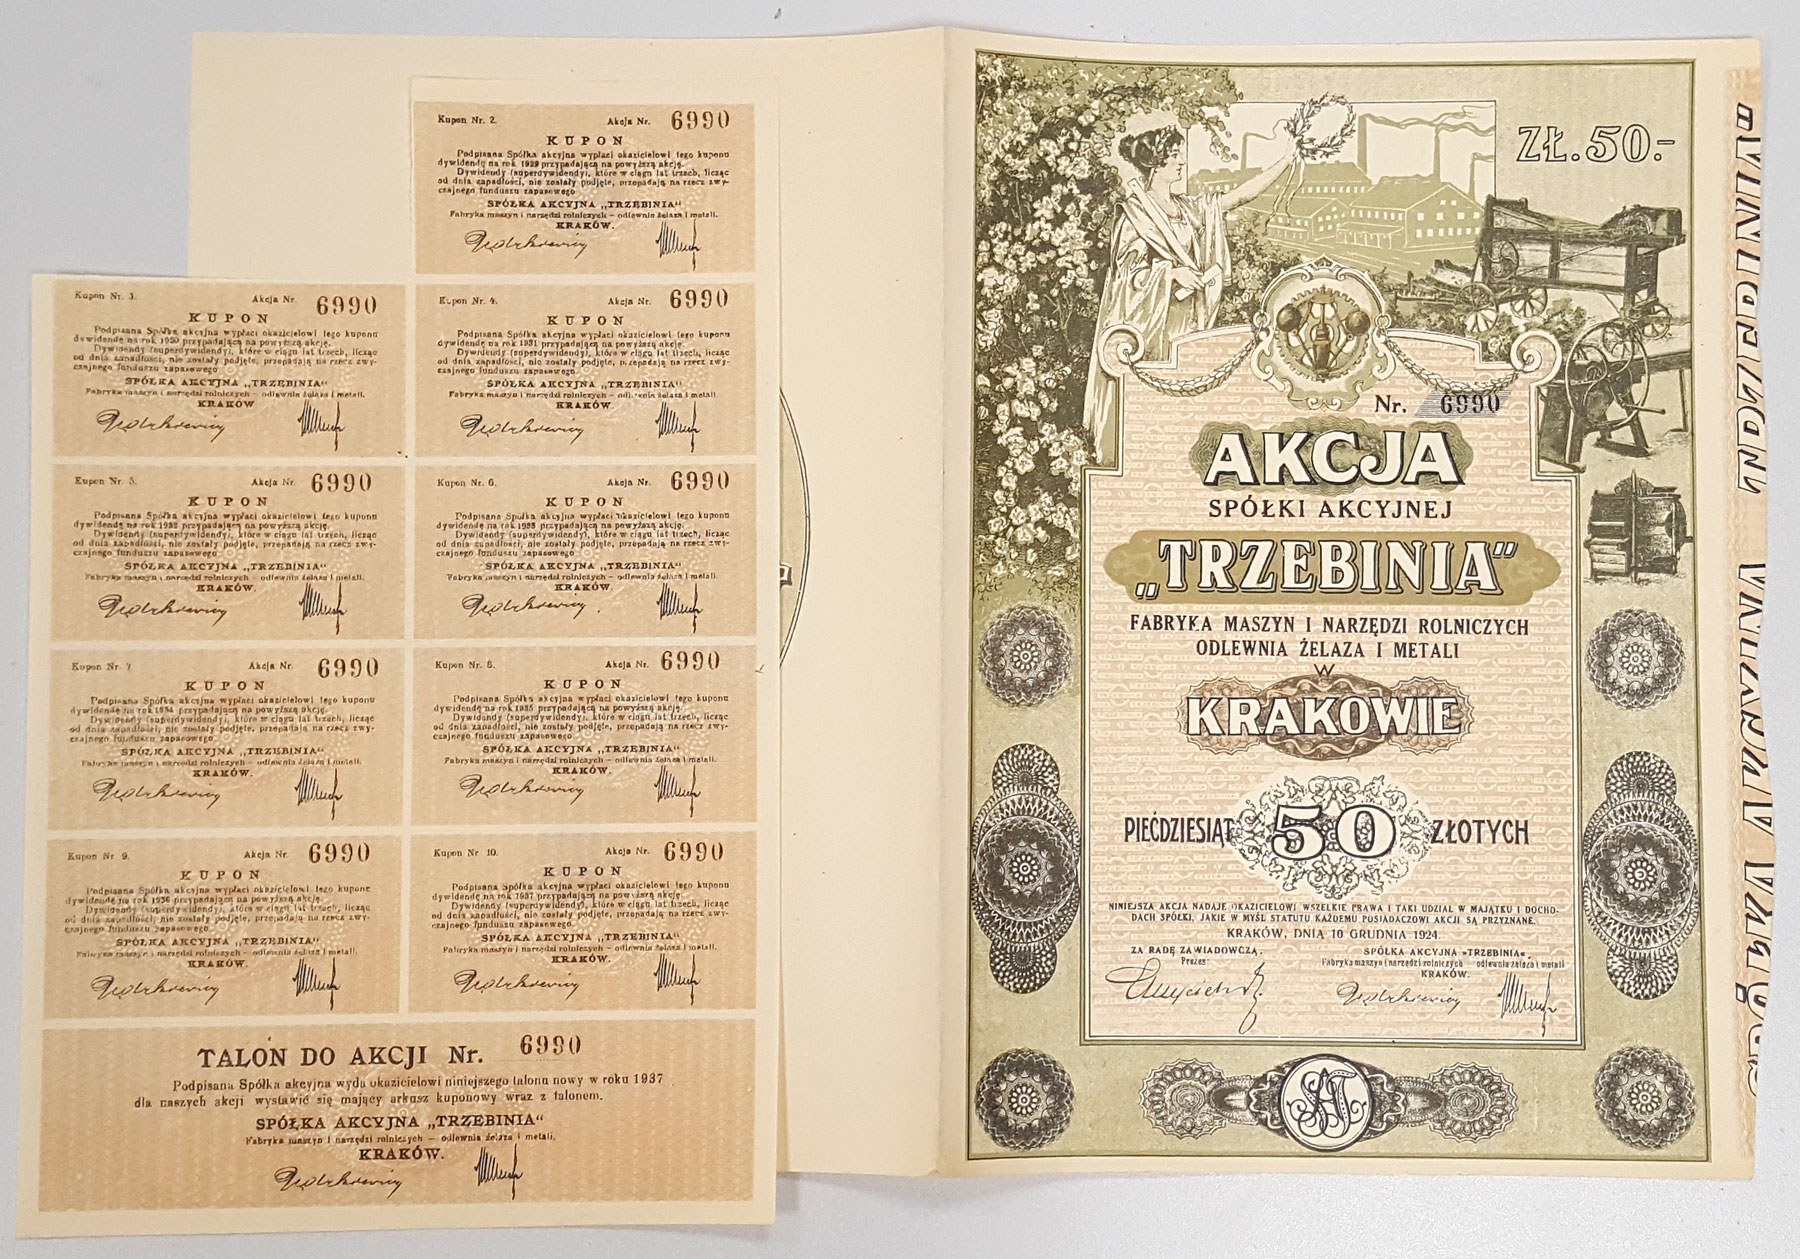 Kupon Nr. 2. Akcja Nr. 6990
KUPON
Podpisana Spółka akcyjna wypłaci okazicielowi tego kuponu
dywidendę na rok 1929 przypadającą na powyższą akcję.
Dywidendy (superdywidendy), które w ciągu lat trzech, licząc
od dnia zapadłości, nie zostały podjęte, przepadają na rzecz zwy-
czajnego funduszu zapasowego
SPÓŁKA AKCYJNA „TRZEBINIA"
Fabryka maszyn i narzędzi rolniczych – odlewnia żelaza i metali.
KRAKÓW.
Kupon Nr. 3. Akcja Nr. 6990
KUPON
Podpisana Spółka akcyjna wypłaci okazicielowi tego kuponu
dywidendę na rok 1930 przypadającą na powyższą akcję.
Dywidendy (superdywidendy), które w ciągu lat trzech, licząc
od dnia zapadłości, nie zostały podjęte, przepadają na rzecz zwy-
czajnego funduszu zapasowego
SPÓŁKA AKCYJNA „TRZEBINIA"
Fabryka maszyn i narzędzi rolniczych – odlewnia żelaza i metali.
KRAKÓW.
Kupon Nr. 4. Akcja Nr. 6990
KUPON
Podpisana Spółka akcyjna wypłaci okazicielowi tego kuponu
dywidendę na rok 1931 przypadającą na powyższą akcję.
Dywidendy (superdywidendy), które w ciągu lat trzech, licząc
od dnia zapadłości, nie zostały podjęte, przepadają na rzecz zwy-
czajnego funduszu zapasowego
SPÓŁKA AKCYJNA „TRZEBINIA"
Fabryka maszyn i narzędzi rolniczych – odlewnia żelaza i metali.
KRAKÓW.
Kupon Nr. 5. Akcja Nr. 6990
KUPON
Podpisana Spółka akcyjna wypłaci okazicielowi tego kuponu
dywidendę na rok 1932 przypadającą na powyższą akcję.
Dywidendy (superdywidendy), które w ciągu lat trzech, licząc
od dnia zapadłości, nie zostały podjęte, przepadają na rzecz zwy-
czajnego funduszu zapasowego
SPÓŁKA AKCYJNA „TRZEBINIA"
Fabryka maszyn i narzędzi rolniczych – odlewnia żelaza i metali.
KRAKÓW.
Kupon Nr. 6. Akcja Nr. 6990
KUPON
Podpisana Spółka akcyjna wypłaci okazicielowi tego kuponu
dywidendę na rok 1933 przypadającą na powyższą akcję.
Dywidendy (superdywidendy), które w ciągu lat trzech, licząc
od dnia zapadłości, nie zostały podjęte, przepadają na rzecz zwy-
czajnego funduszu zapasowego
SPÓŁKA AKCYJNA „TRZEBINIA"
Fabryka maszyn i narzędzi rolniczych – odlewnia żelaza i metali.
KRAKÓW.
Kupon Nr. 7. Akcja Nr. 6990
KUPON
Podpisana Spółka akcyjna wypłaci okazicielowi tego kuponu
dywidendę na rok 1934 przypadającą na powyższą akcję.
Dywidendy (superdywidendy), które w ciągu lat trzech, licząc
od dnia zapadłości, nie zostały podjęte, przepadają na rzecz zwy-
czajnego funduszu zapasowego
SPÓŁKA AKCYJNA „TRZEBINIA"
Fabryka maszyn i narzędzi rolniczych – odlewnia żelaza i metali.
KRAKÓW.
Kupon Nr. 8. Akcja Nr. 6990
KUPON
Podpisana Spółka akcyjna wypłaci okazicielowi tego kuponu
dywidendę na rok 1935 przypadającą na powyższą akcję.
Dywidendy (superdywidendy), które w ciągu lat trzech, licząc
od dnia zapadłości, nie zostały podjęte, przepadają na rzecz zwy-
czajnego funduszu zapasowego
SPÓŁKA AKCYJNA „TRZEBINIA"
Fabryka maszyn i narzędzi rolniczych – odlewnia żelaza i metali.
KRAKÓW.
Kupon Nr. 9. Akcja Nr. 6990
KUPON
Podpisana Spółka akcyjna wypłaci okazicielowi tego kuponu
dywidendę na rok 1936 przypadającą na powyższą akcję.
Dywidendy (superdywidendy), które w ciągu lat trzech, licząc
od dnia zapadłości, nie zostały podjęte, przepadają na rzecz zwy-
czajnego funduszu zapasowego
SPÓŁKA AKCYJNA „TRZEBINIA"
Fabryka maszyn i narzędzi rolniczych – odlewnia żelaza i metali.
KRAKÓW.
Kupon Nr. 10. Akcja Nr. 6990
KUPON
Podpisana Spółka akcyjna wypłaci okazicielowi tego kuponu
dywidendę na rok 1937 przypadającą na powyższą akcję.
Dywidendy (superdywidendy), które w ciągu lat trzech, licząc
od dnia zapadłości, nie zostały podjęte, przepadają na rzecz zwy-
czajnego funduszu zapasowego
SPÓŁKA AKCYJNA „TRZEBINIA"
Fabryka maszyn i narzędzi rolniczych – odlewnia żelaza i metali.
KRAKÓW.
TALON DO AKCJI Nr. 6990
Podpisana Spółka akcyjna wyda okazicielowi niniejszego talonu nowy w roku 1937
dla naszych akcji wystawić się mający arkusz kuponowy wraz z talonem.
SPÓŁKA AKCYJNA „TRZEBINIA"
Fabryka maszyn i narzędzi rolniczych – odlewnia żelaza i metali.
KRAKÓW.
ZŁ. 50.-
Nr. 6990
AKCJA
SPÓŁKI AKCYJNEJ
„TRZEBINIA"
FABRYKA MASZYN I NARZĘDZI ROLNICZYCH
ODLEWNIA ŻELAZA I METALI
W
KRAKOWIE
PIEĆDZIESIĄT 50 ZŁOTYCH
NINIEJSZA AKCJA NADAJE OKAZICIELOWI WSZELKIE PRAWA I TAKI UDZIAŁ W MAJĄTKU I DOCHO-
DACH SPÓŁKI, JAKIE W MYŚL STATUTU KAŻDEMU POSIADACZOWI AKCJI SĄ PRZYZNANE.
KRAKÓW, DNIA 10 GRUDNIA 1924.
ZA RADĘ ZAWIADOWCZĄ.
Prezes:
SPÓŁKA AKCYJNA »TRZEBINIA«
Fabryka maszyn i narzędzi rolniczych odlewnia żelaza i metali
KRAKÓW.